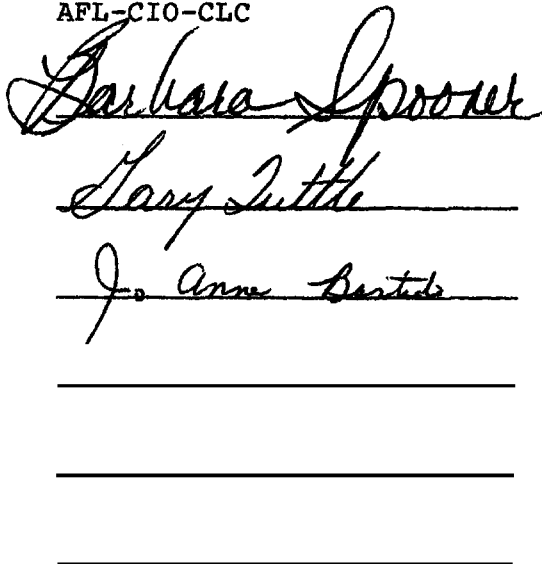 AFL-CIO-CLC
Barbara Spooner
Gary Tuttle
Jo Anne